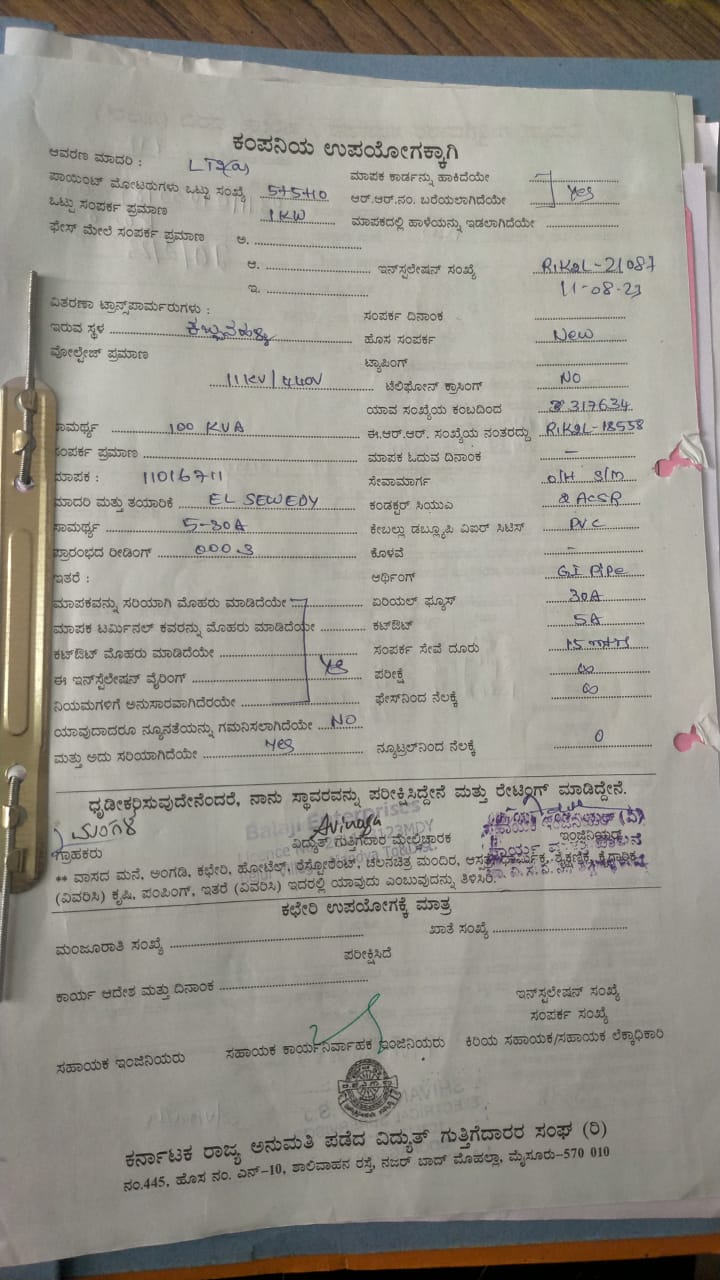 ಕಂಪನಿಯ ಉಪಯೋಗಕ್ಕಾಗಿ
ಆವರಣ ಮಾದರಿ : ಮಾಪಕ ಕಾರ್ಡನ್ನು ಹಾಕಿದೆಯೇ
ಪಾಯಿಂಟ್ ಮೋಟರುಗಳು ಒಟ್ಟು ಸಂಖ್ಯೆ 5+5+10 ಆರ್.ಆರ್.ನಂ. ಬರೆಯಲಾಗಿದೆಯೇ Yes
ಒಟ್ಟು ಸಂಪರ್ಕ ಪ್ರಮಾಣ 1KW ಮಾಪಕದಲ್ಲಿ ಹಾಳೆಯನ್ನು ಇಡಲಾಗಿದೆಯೇ
ಫೇಸ್ ಮೇಲೆ ಸಂಪರ್ಕ ಪ್ರಮಾಣ ಅ.
ಆ. ಇನ್‌ಸ್ಟಲೇಷನ್ ಸಂಖ್ಯೆ RIKQL-21087
ಇ. 11-08-23
ವಿತರಣಾ ಟ್ರಾನ್ಸ್‌ಪಾರ್ಮರುಗಳು : ಸಂಪರ್ಕ ದಿನಾಂಕ
ಇರುವ ಸ್ಥಳ ಹೊಸ ಸಂಪರ್ಕ New
ವೋಲ್ಟೇಜ್ ಪ್ರಮಾಣ ಟ್ಯಾಪಿಂಗ್
11KV/440V ಟೆಲಿಫೋನ್ ಕ್ರಾಸಿಂಗ್ NO
ಯಾವ ಸಂಖ್ಯೆಯ ಕಂಬದಿಂದ 317634
ಸಾಮರ್ಥ್ಯ 100 KVA ಈ.ಆರ್.ಆರ್. ಸಂಖ್ಯೆಯ ನಂತರದ್ದು RIKQL-18558
ಸಂಪರ್ಕ ಪ್ರಮಾಣ ಮಾಪಕ ಓದುವ ದಿನಾಂಕ –
ಮಾಪಕ : 11016711 ಸೇವಾಮಾರ್ಗ O/H S/M
ಮಾದರಿ ಮತ್ತು ತಯಾರಿಕೆ EL SEWEDY ಕಂಡಕ್ಟರ್ ಸಿಯುಎ 2 ACSR
ಸಾಮರ್ಥ್ಯ 5-30A ಕೇಬಲ್ಲು ಡಬ್ಲ್ಯೂಪಿ ಎಐರ್ ಸಿಟಿಸ್ PVC
ಪ್ರಾರಂಭದ ರೀಡಿಂಗ್ 000.3 ಕೊಳವೆ –
ಇತರೆ : ಆರ್ಥಿಂಗ್ GI PIPe
ಮಾಪಕವನ್ನು ಸರಿಯಾಗಿ ಮೊಹರು ಮಾಡಿದೆಯೇ ಏರಿಯಲ್ ಫ್ಯೂಸ್ 30A
ಮಾಪಕ ಟರ್ಮಿನಲ್ ಕವರನ್ನು ಮೊಹರು ಮಾಡಿದೆಯೇ ಕಟ್‌ಔಟ್ 5A
ಕಟ್‌ಔಟ್ ಮೊಹರು ಮಾಡಿದೆಯೇ ಸಂಪರ್ಕ ಸೇವೆ ದೂರು 15 mtrs
ಈ ಇನ್‌ಸ್ಟಲೇಷನ್ ವೈರಿಂಗ್ Yes ಪರೀಕ್ಷೆ ∞
ನಿಯಮಗಳಿಗೆ ಅನುಸಾರವಾಗಿದೆರಯೇ ಫೇಸ್‌ನಿಂದ ನೆಲಕ್ಕೆ ∞
ಯಾವುದಾದರೂ ನ್ಯೂನತೆಯನ್ನು ಗಮನಿಸಲಾಗಿದೆಯೇ NO
ಮತ್ತು ಅದು ಸರಿಯಾಗಿದೆಯೇ Yes ನ್ಯೂಟ್ರಲ್‌ನಿಂದ ನೆಲಕ್ಕೆ 0
ಧೃಡೀಕರಿಸುವುದೇನೆಂದರೆ, ನಾನು ಸ್ಥಾವರವನ್ನು ಪರೀಕ್ಷಿಸಿದ್ದೇನೆ ಮತ್ತು ರೇಟಿಂಗ್ ಮಾಡಿದ್ದೇನೆ.
Balaji Enterprises
ಮಂಗಳ
ಗ್ರಾಹಕರು ವಿದ್ಯುತ್ ಗುತ್ತಿಗೆದಾರ ಮೇಲ್ವಿಚಾರಕ ಇಂಜಿನಿಯರ
** ವಾಸದ ಮನೆ, ಅಂಗಡಿ, ಕಛೇರಿ, ಹೋಟೆಲ್, ರೆಸ್ಟೋರೆಂಟ್, ಚಲನಚಿತ್ರ ಮಂದಿರ,
(ವಿವರಿಸಿ) ಕೃಷಿ, ಪಂಪಿಂಗ್, ಇತರೆ (ವಿವರಿಸಿ) ಇದರಲ್ಲಿ ಯಾವುದು ಎಂಬುವುದನ್ನು ತಿಳಿಸಿರಿ.
ಕಛೇರಿ ಉಪಯೋಗಕ್ಕೆ ಮಾತ್ರ
ಮಂಜೂರಾತಿ ಸಂಖ್ಯೆ ಖಾತೆ ಸಂಖ್ಯೆ
ಪರೀಕ್ಷಿಸಿದೆ
ಕಾರ್ಯ ಆದೇಶ ಮತ್ತು ದಿನಾಂಕ
ಇನ್‌ಸ್ಟಲೇಷನ್ ಸಂಖ್ಯೆ
ಸಂಪರ್ಕ ಸಂಖ್ಯೆ
ಸಹಾಯಕ ಇಂಜಿನಿಯರು ಸಹಾಯಕ ಕಾರ್ಯನಿರ್ವಾಹಕ ಇಂಜಿನಿಯರು ಕಿರಿಯ ಸಹಾಯಕ/ಸಹಾಯಕ ಲೆಕ್ಕಾಧಿಕಾರಿ
ಕರ್ನಾಟಕ ರಾಜ್ಯ ಅನುಮತಿ ಪಡೆದ ವಿದ್ಯುತ್ ಗುತ್ತಿಗೆದಾರರ ಸಂಘ (ರಿ)
ನಂ.445, ಹೊಸ ನಂ. ಎನ್-10, ಶಾಲಿವಾಹನ ರಸ್ತೆ, ನಜರ್ ಬಾದ್ ಮೊಹಲ್ಲಾ, ಮೈಸೂರು-570 010